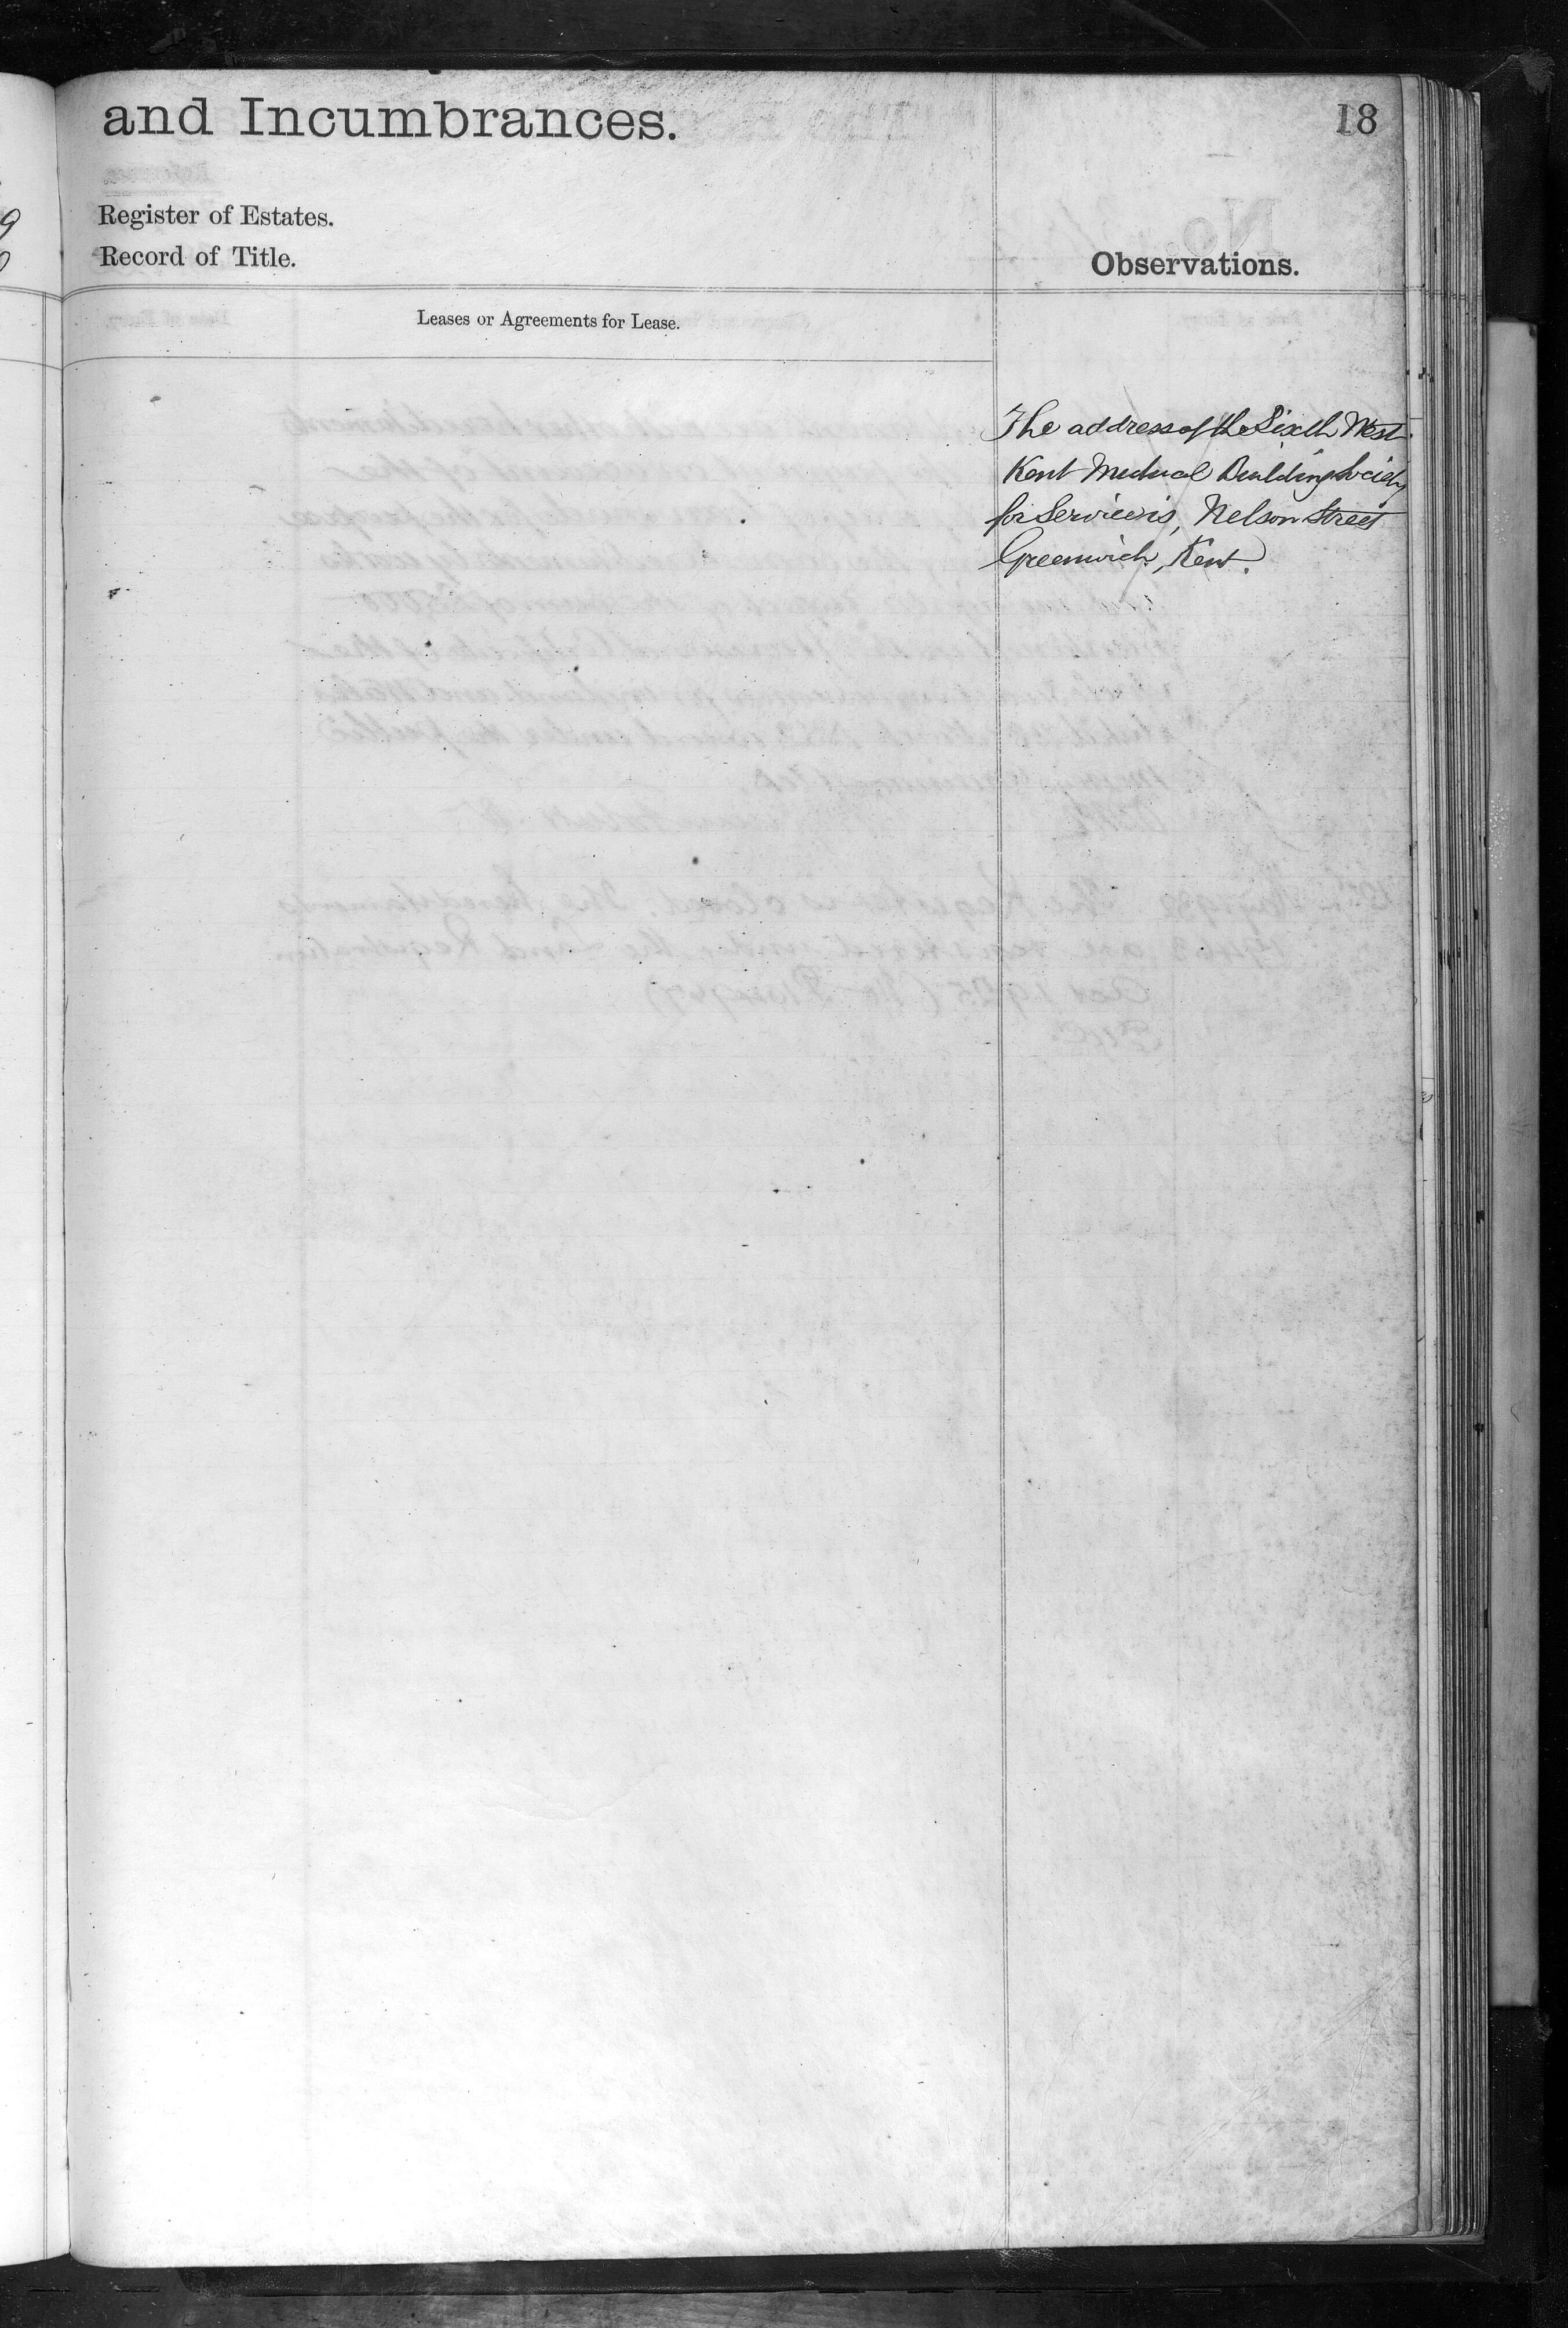 and Incumbrances.
18
Register of Estates.
Record of Title.
Observations.
Leases or Agreements for Lease.
The address of the Sixth West
Kent Mutual Building Society
for Service is, Nelson Street
Greenwich, Kent.